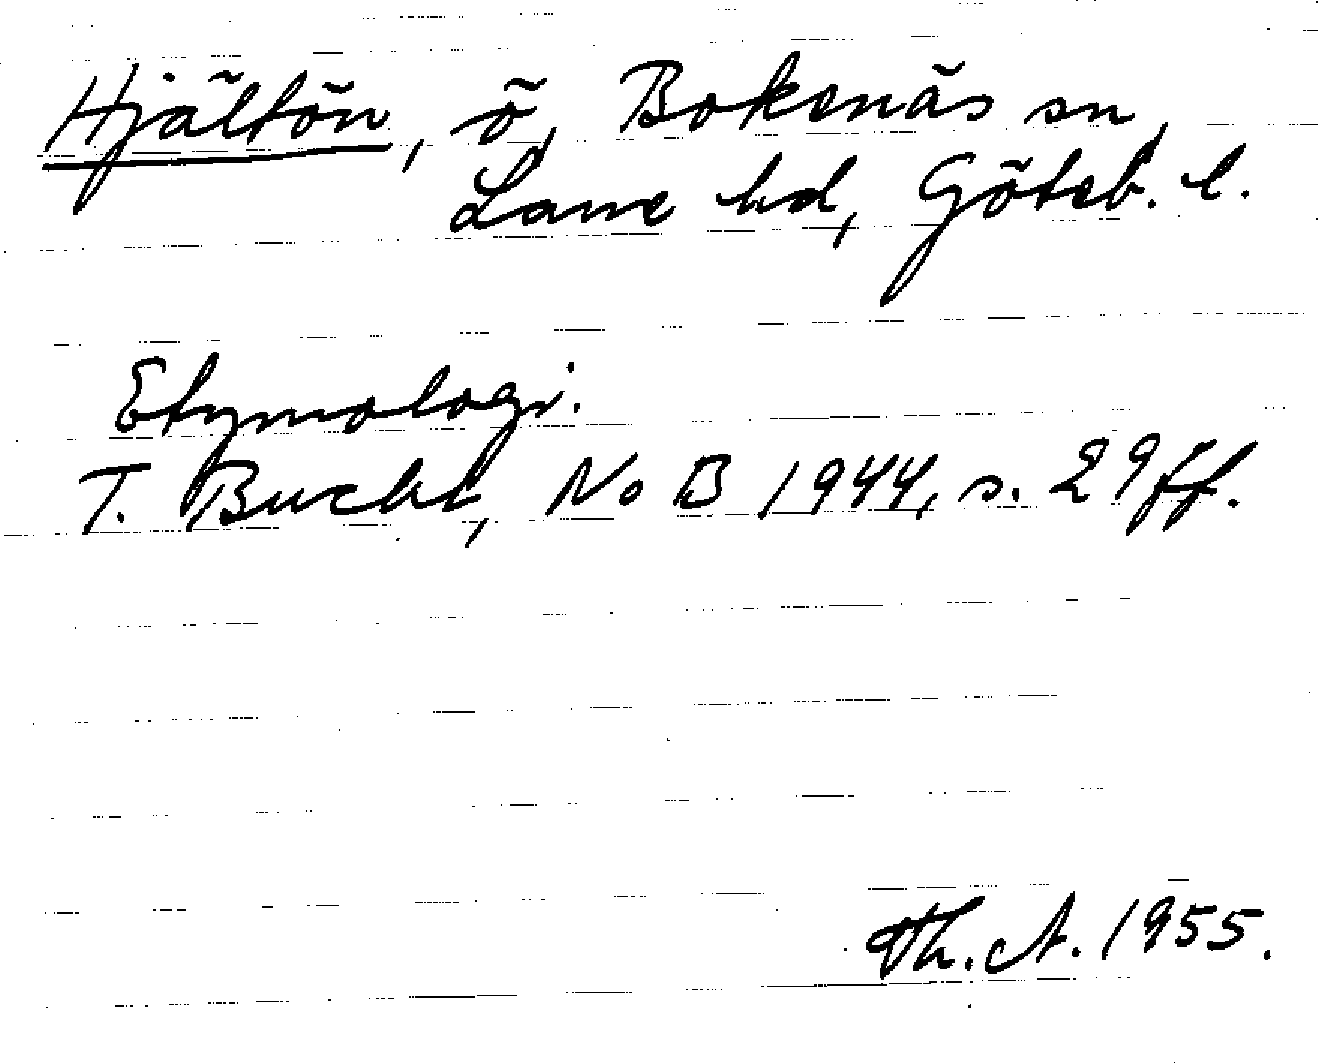 Hjältön, ö, Bokenäs sn,
Lane hd, Göteb. l.
Etymologi.
T. Bucht, NoB 1944, s. 29 ff.
Th. A. 1955.